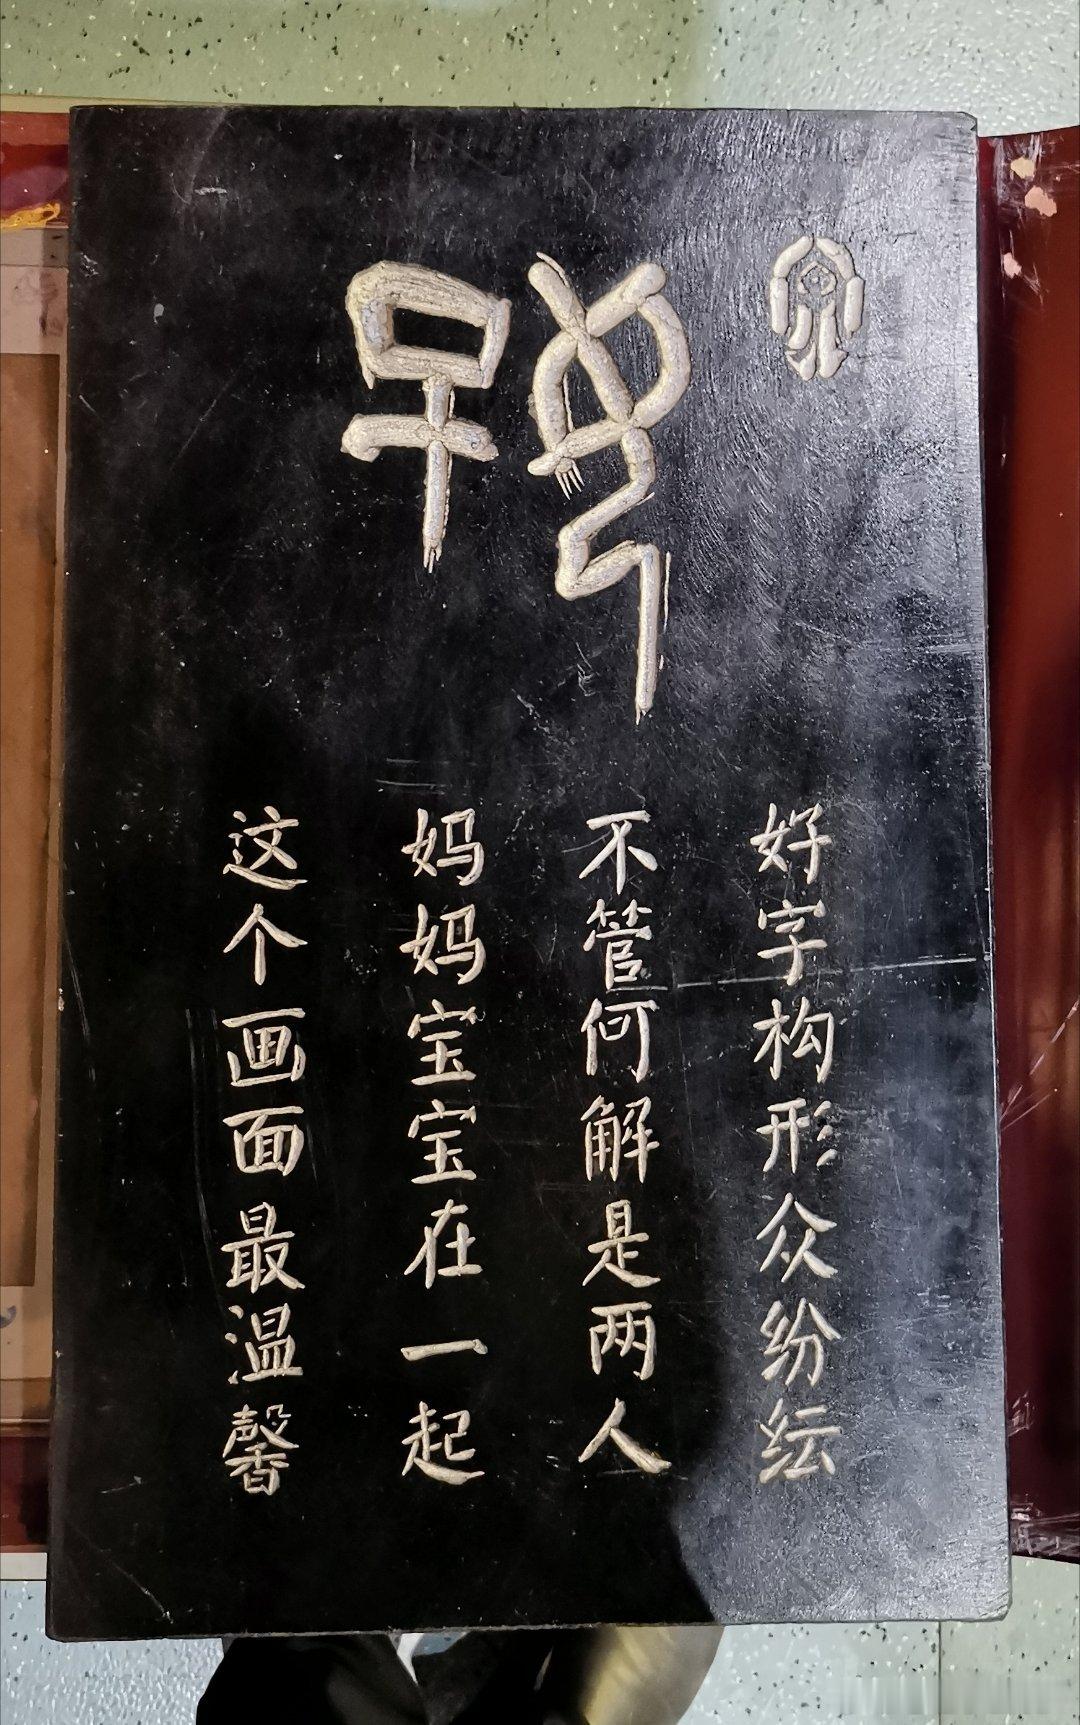 好
好字构形众纷纭
不管何解是两人
妈妈宝宝在一起
这个画面最温馨